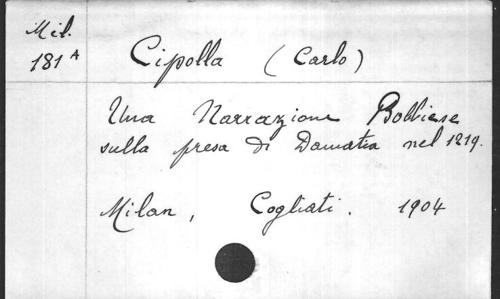 Mil.
181 A
Cipolla (Carlo)
Una Narrazione Bobbiese
sulla presa di Damiata nel 1219.
Milan, Cogliati. 1904